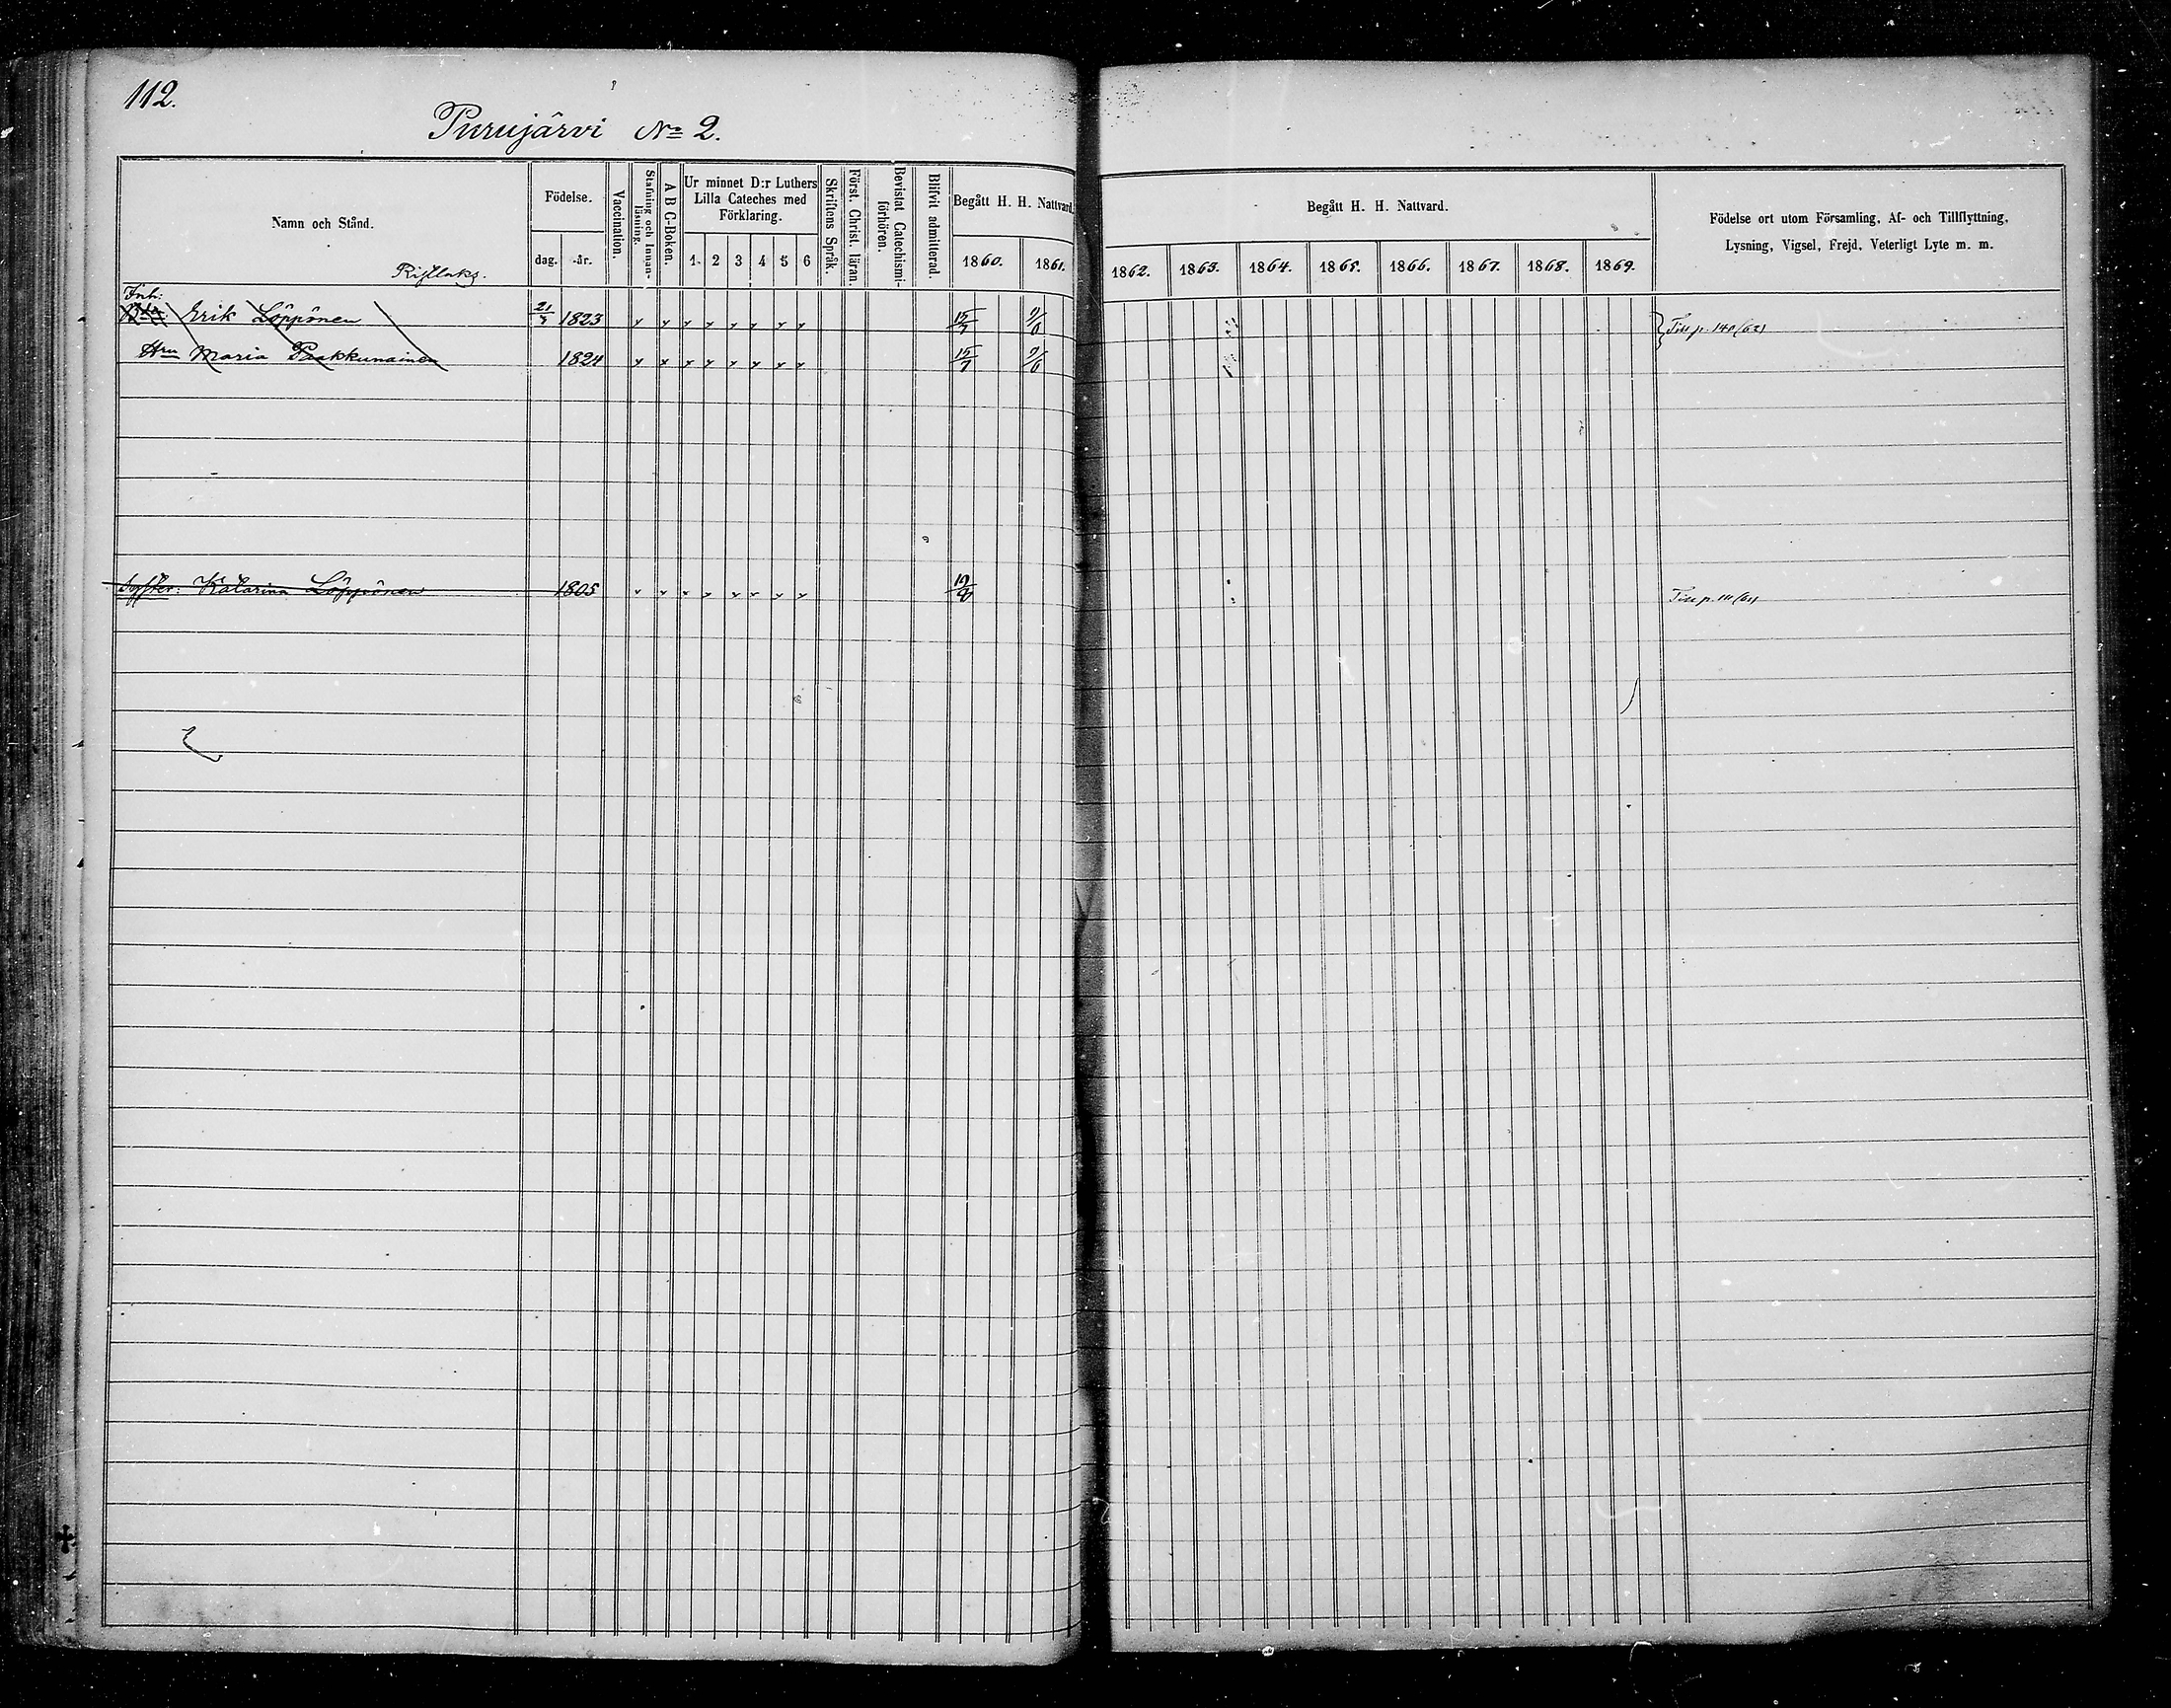 112.
Purujärvi No 2.
Namn och Stånd.
Födelse.
dag.
år.
Vaccination.
Stafning och Innan-läsning.
A B C-Boken.
Ur minnet D:r Luthers
Lilla Cateches med
Förklaring.
1 2 3 4 5 6
Skriftens Språk.
Först. Christ. läran.
Bevistat Catechismi-förhören.
Blifvit admitterad.
Begått H. H. Nattvard.
1860. 1861.
Begått H. H. Nattvard.
1862. 1863. 1864. 1865. 1866. 1867. 1868. 1869.
Födelse ort utom Församling, Af- och Tillflyttning,
Lysning, Vigsel, Frejd, Veterligt Lyte m. m.
Ristlaks.
Inh:
Erik Löppönen 21/3 1823 15/7 9/6 Till p. 140 (62)
Hru Maria Paakkunainen 1824 15/7 9/6
Syster: Katarina Löppönen 1805 19/8 Till p. 111 (61)